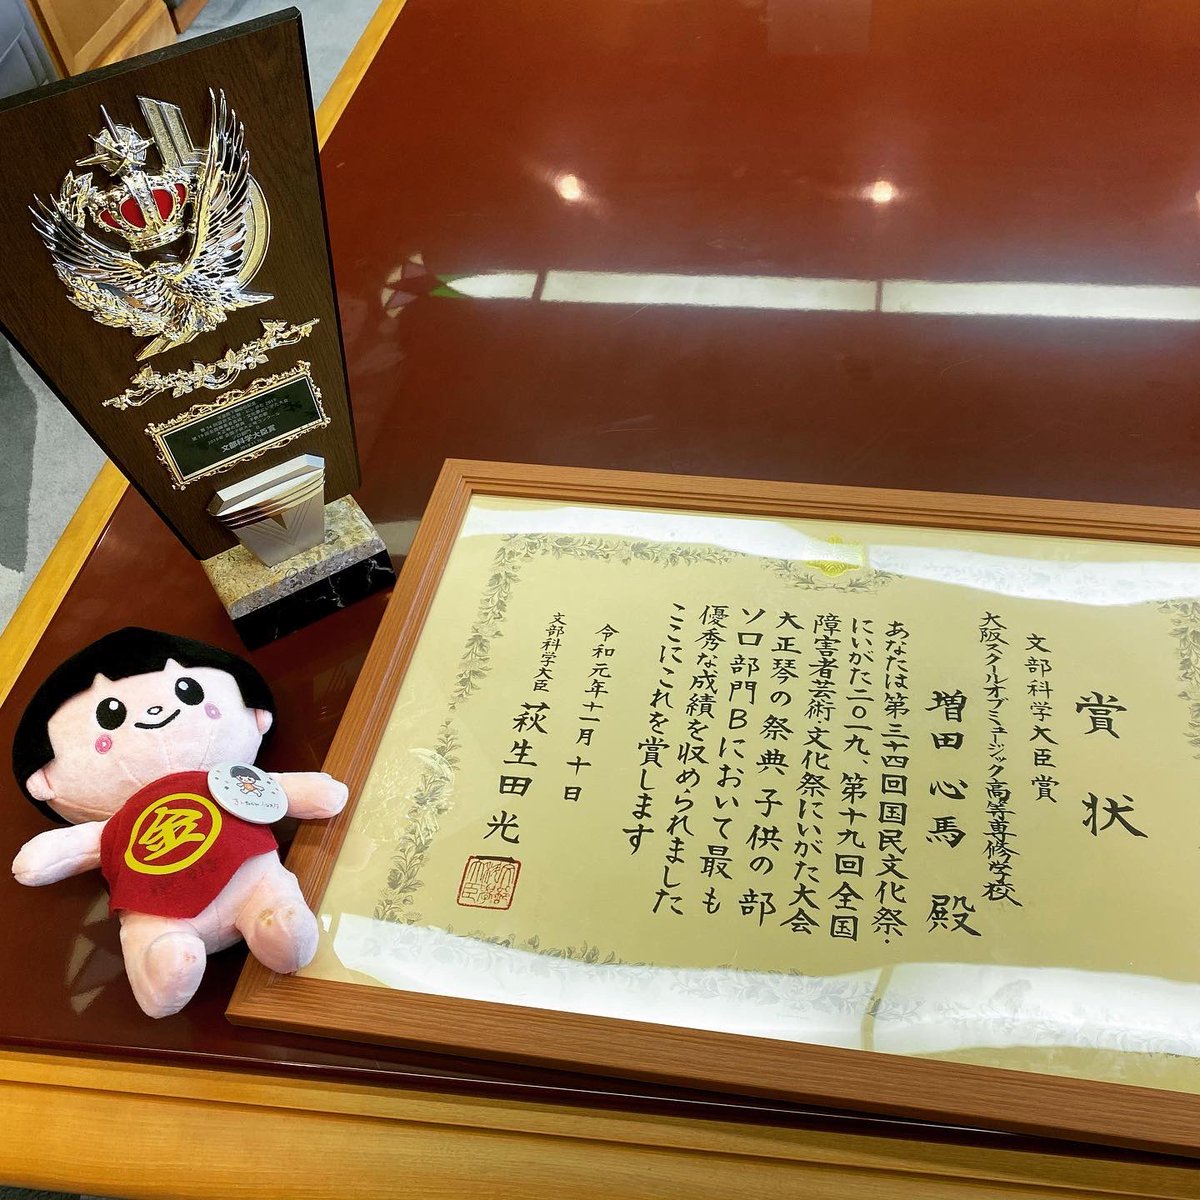 賞状
文部科学大臣賞
大阪スクールオブミュージック高等専修学校
増田心馬 殿
あなたは第三十四回国民文化祭・
にいがた二〇一九、第十九回全国
障害者芸術・文化祭にいがた大会
大正琴の祭典子供の部
ソロ部門Bにおいて最も
優秀な成績を収められました
ここにこれを賞します
令和元年十一月十日
文部科学大臣 萩生田光一
文部科学大臣賞
金